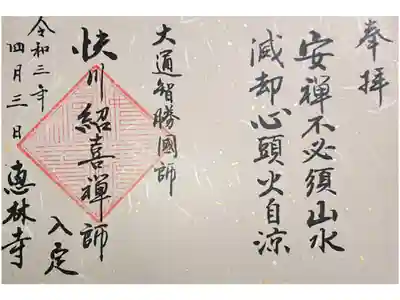 奉拝
安禅不必須山水
滅却心頭火自涼
大通智勝國師
快川紹喜禅師
入定
令和三年
四月三日
惠林寺